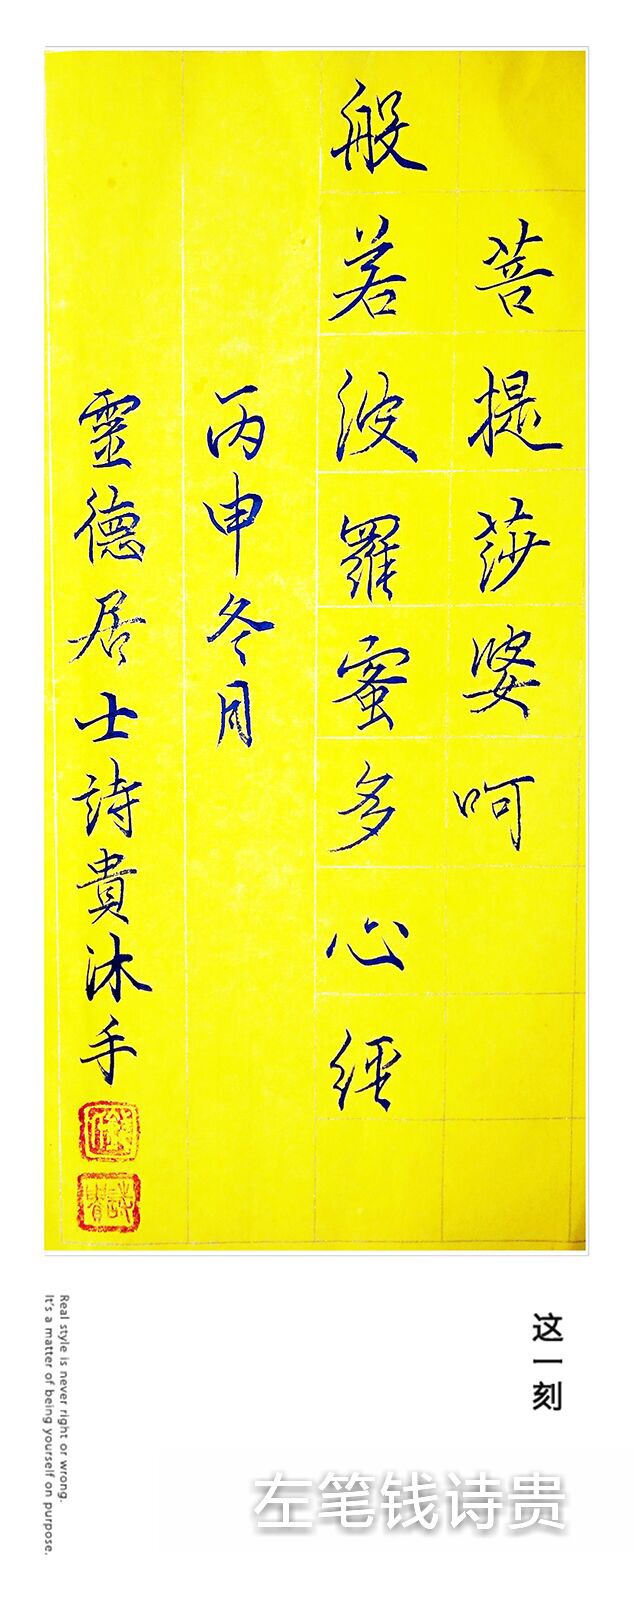 菩提莎婆呵
般若波羅蜜多心經
丙申冬月
靈德居士詩貴沐手
这一刻
Real style is never right or wrong.
It's a matter of being yourself on purpose.
左笔钱诗贵